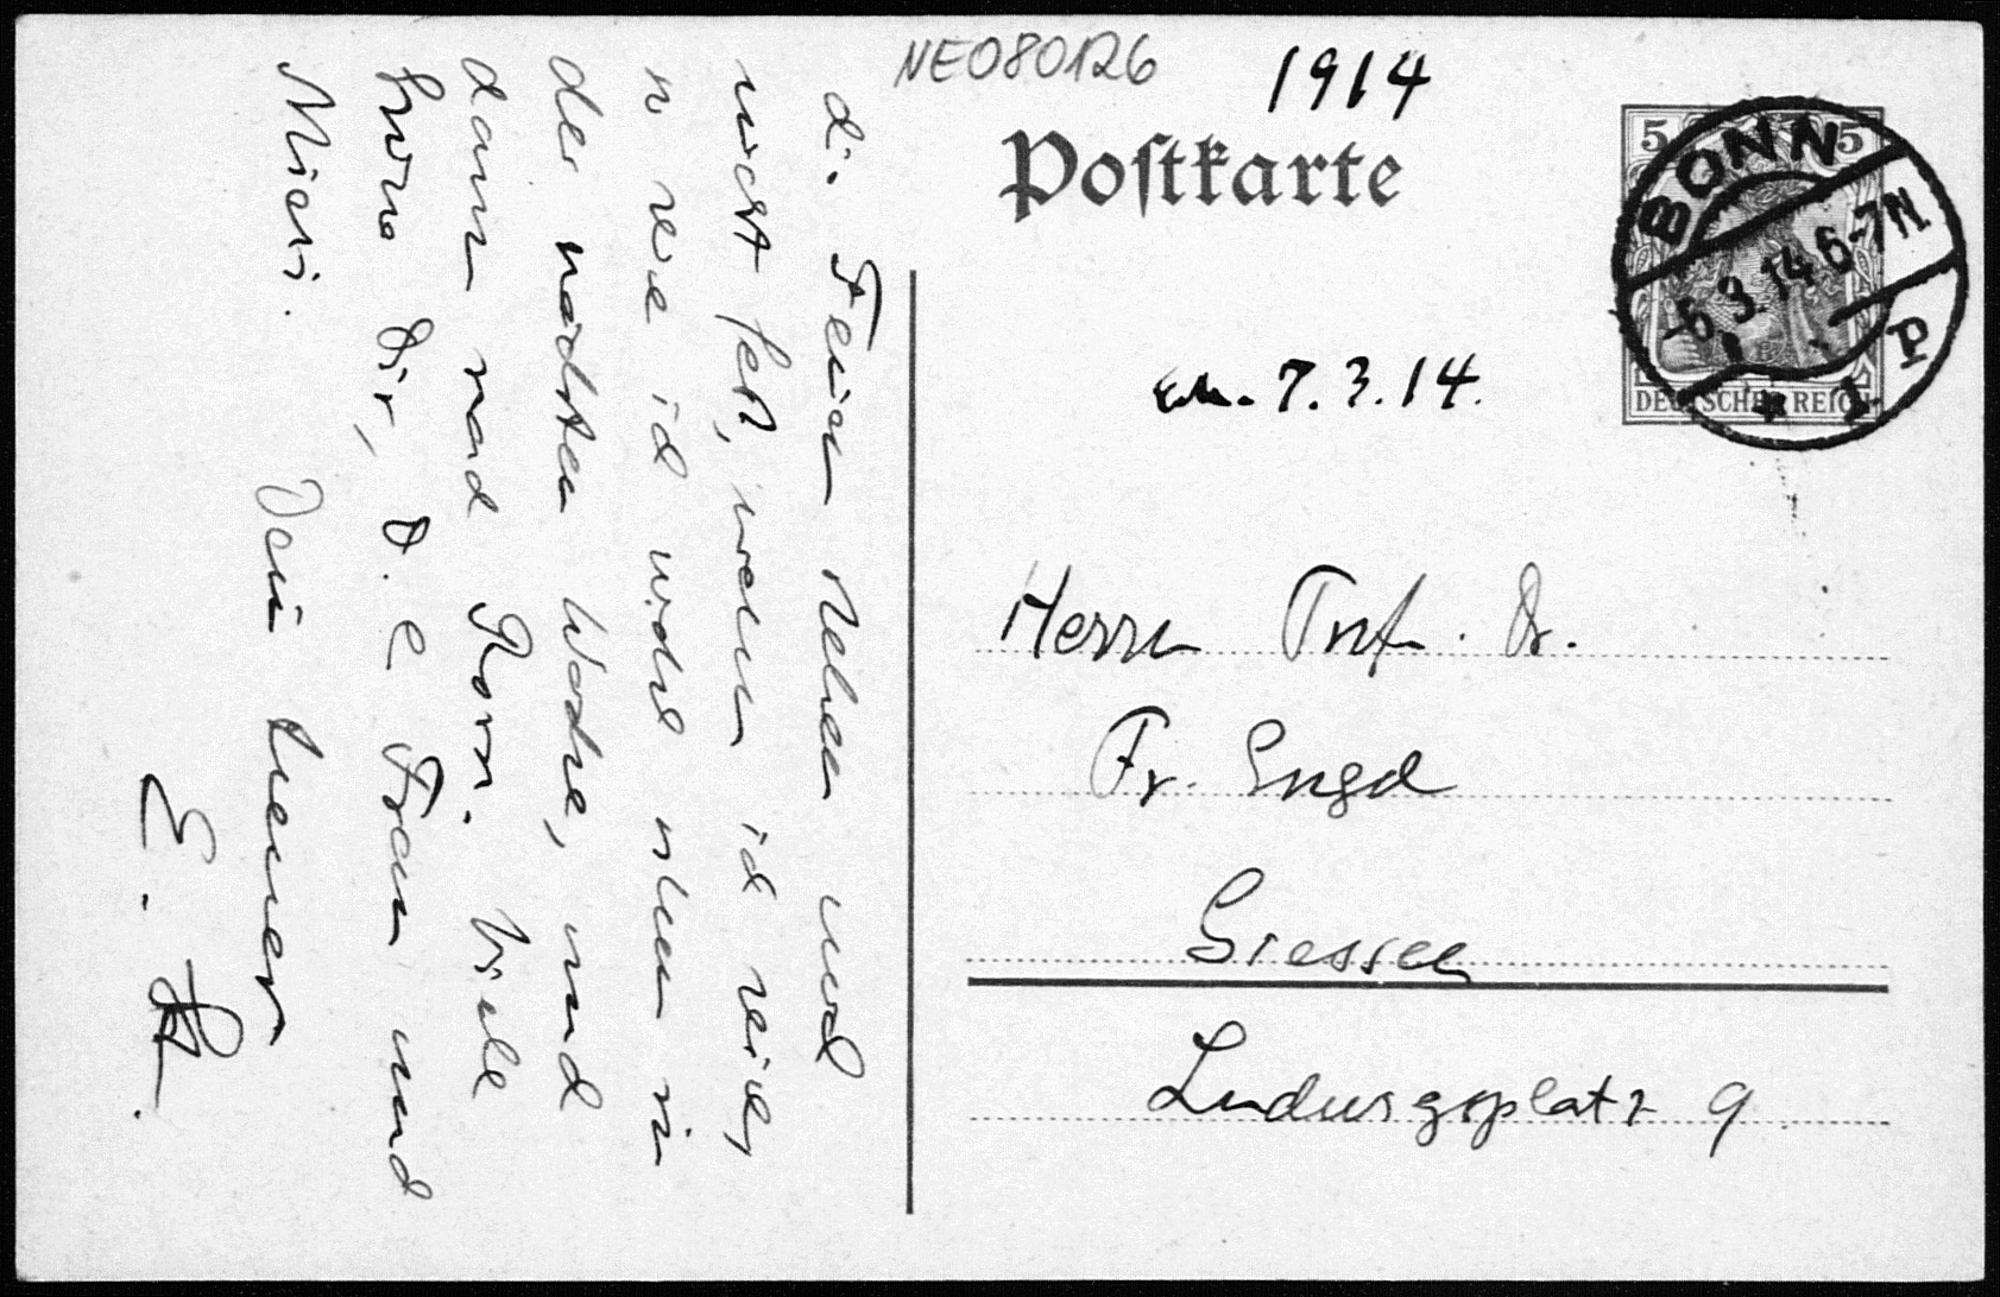 NE080126
1914
Postkarte
5 5
BONN
-6.3.14 6-7N.
* 1 P
DEUTSCHES REICH
erh. 7.3.14.
Herrn Prof. Dr.
Fr. Engel
Giessen
Ludwigsplatz 9
di. Ferien stehen noch
nicht fest, wann ich reise,
ich wohl schon in
der nächsten Woche, und
dann nach Rom. Viele
Grüsse Dir, D. l. Frau und
Mieri.
Dein treuer
E.